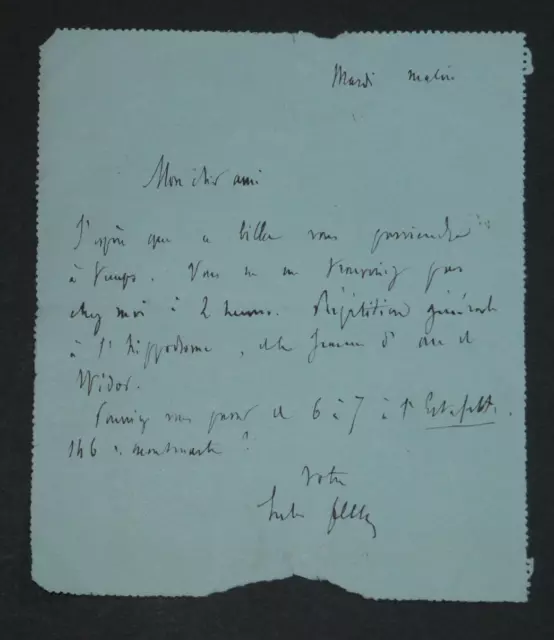 Mardi matin
Mon cher ami
J'espère que ce billet vous parviendra
à temps. Vous ne me trouveriez pas
chez moi à 2 heures. Répétition générale
à l'hippodrome, de la Jeanne d'Arc de
Widor.
Pourriez vous passer de 6 à 7 à l'Estafette.
146 r. montmartre ?
Votre